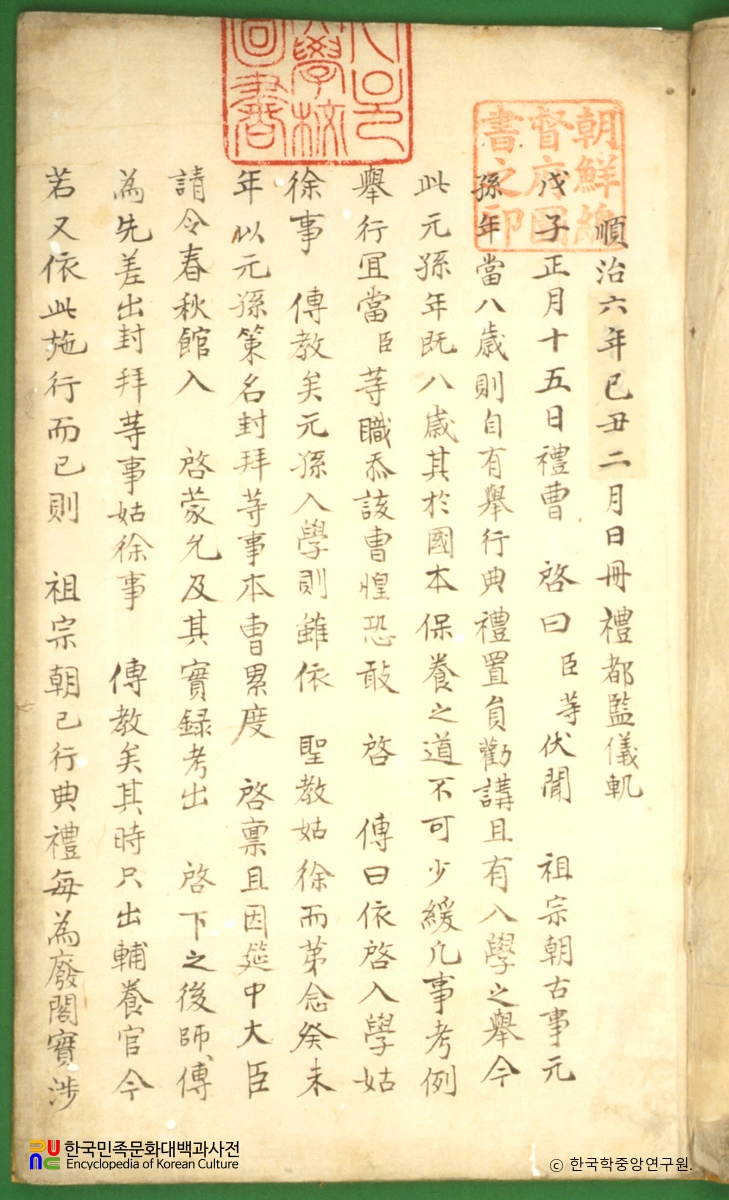 順治六年己丑二月日冊禮都監儀軌
戊子正月十五日禮曹 啓曰臣等伏聞 祖宗朝古事元
孫年當八歲則自有擧行典禮置員勸講且有入學之擧今
此元孫年旣八歲其於國本保養之道不可少緩凡事考例
擧行宜當臣等職忝該曹惶恐敢 啓 傳曰依啓入學姑
徐事 傳敎矣元孫入學則雖依 聖敎姑徐而第念癸未
年以元孫策名封拜等事本曹累度 啓稟且因筵中大臣
請令春秋館入 啓蒙允及其實錄考出 啓下之後師傅
爲先差出封拜等事姑徐事 傳敎矣其時只出輔養官今
若又依此施行而已則 祖宗朝已行典禮每爲廢閣實涉
朝鮮總
督府圖
書之印
學校
圖書
한국민족문화대백과사전
Encyclopedia of Korean Culture
© 한국학중앙연구원.